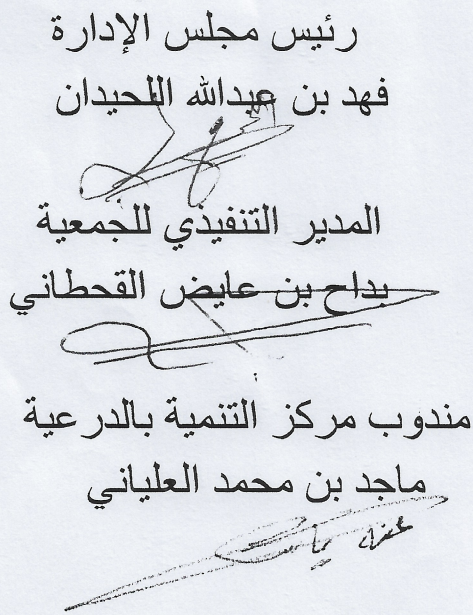 رئيس مجلس الإدارة
فهد بن عبدالله اللحيدان
المدير التنفيذي للجمعية
بداح بن عايض القحطاني
مندوب مركز التنمية بالدرعية
ماجد بن محمد العلياني